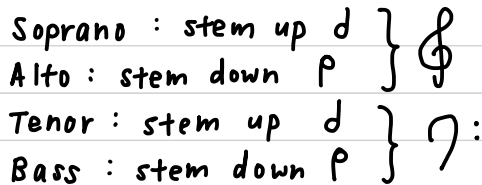 Soprano : stem up
Alto : stem down
Tenor : stem up
Bass : stem down